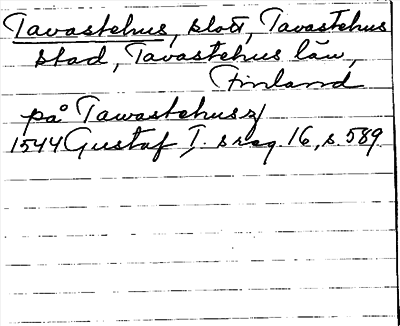 Tavastehus, slott, Tavastehus
stad, Tavastehus län,
Finland
på Tawastehusz/
1544 Gustaf I. s reg. 16, s. 589.